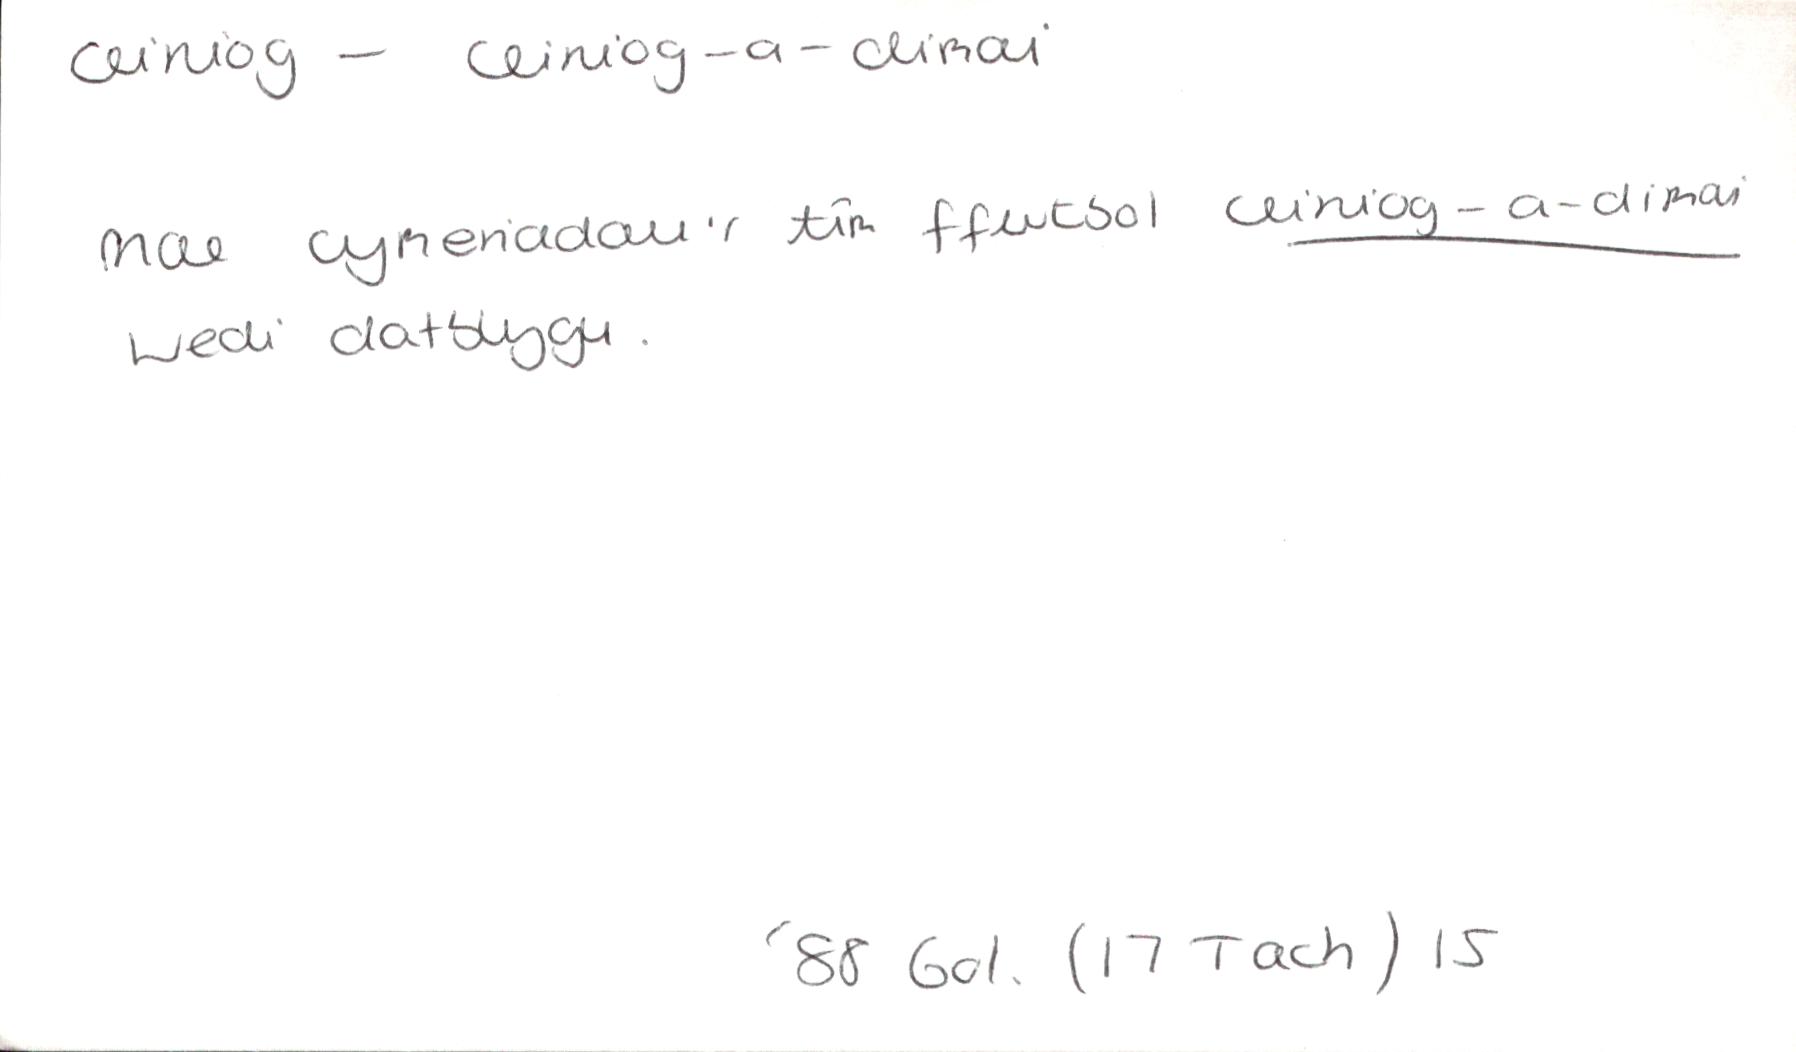 ceiniog - ceiniog-a-dimai
mae cymeriadau'r tîm ffwtbol ceiniog-a-dimai
wedi datblygu.
'88 Gol. (17 Tach) 15